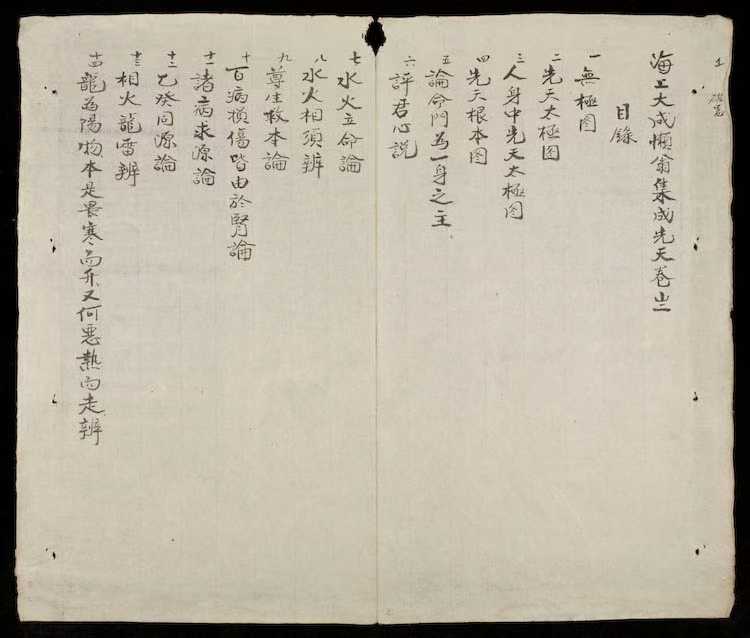 海上大成懶翁集成先天卷
目錄
一 無極图
二 先天太極图
三 人身中先天太極图
四 先天根本图
五 論命門為一身之主
六 評君心説
七 水火立命論
八 水火相須辨
九 尊生救本論
十 百病損傷皆由於腎論
十一 諸病求源論
十二 乙癸同源論
十三 相火龍雷辨
十四 龍為陽物本是畏寒而升又何惡熱而走辨